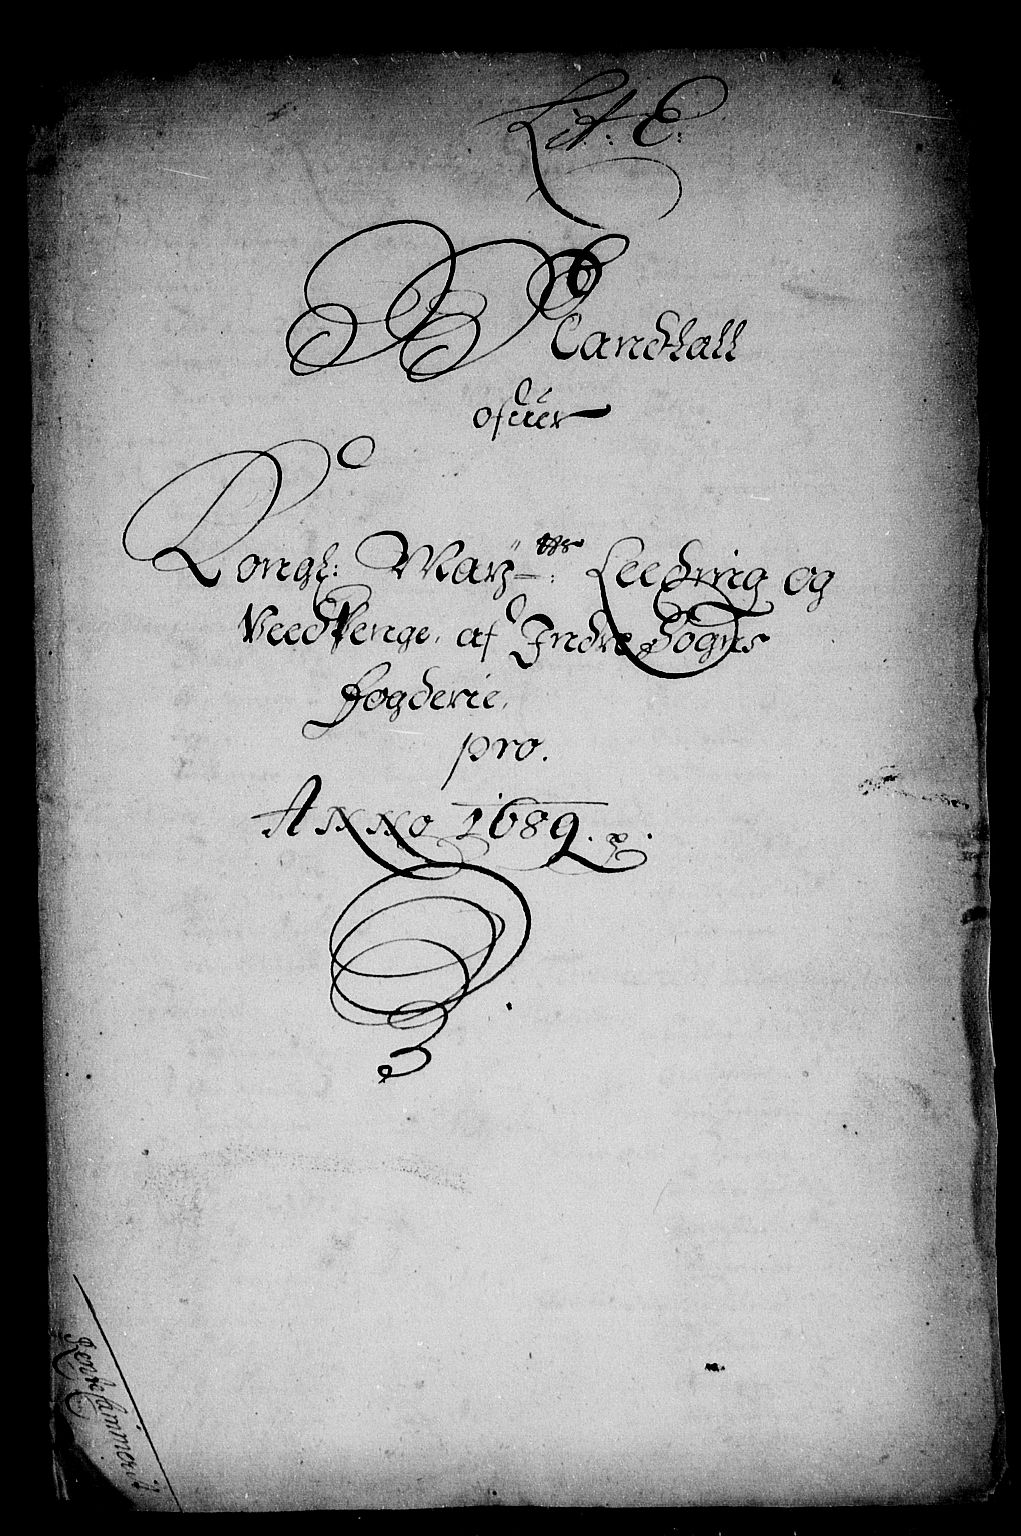 Lit: E:
Mandtall
ofuer
Kongl: May: tts Leeding og
Veedpenge. af Indre Sogns
fogderie.
pro.
Anno 1689.
Rentekammerit